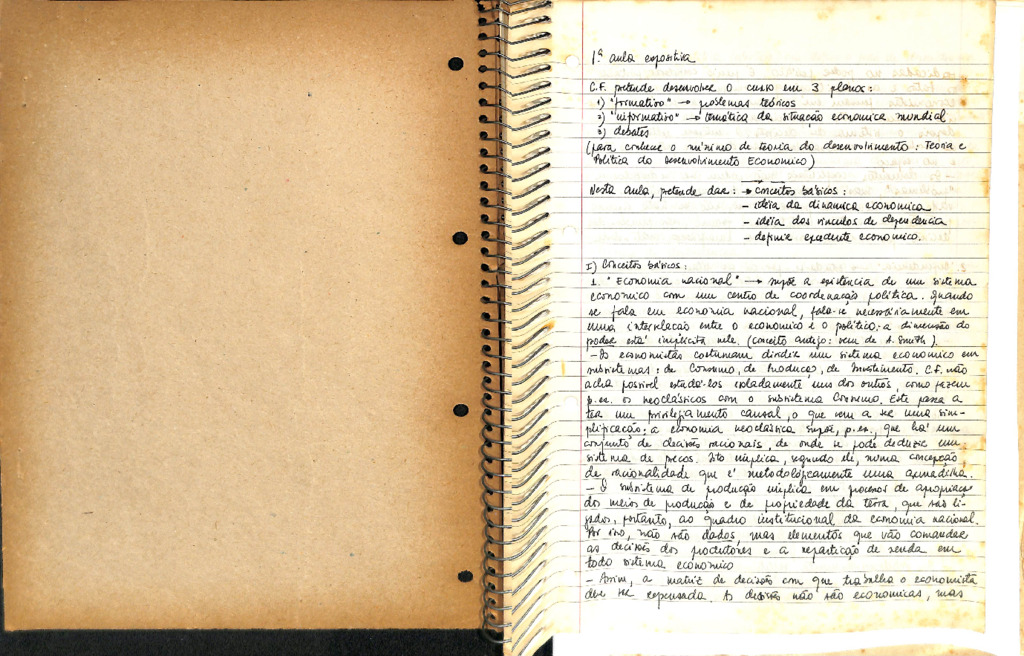 1ª aula expositiva
C.F. pretende desenvolver o curso em 3 planos:
1) "formativo" → problemas teóricos
2) "informativo" → temática da situação economica mundial
3) debates
(para conhecer o mínimo de teoria do desenvolvimento: Teoria e
Política do Desenvolvimento Economico)
Nesta aula, pretende dar: → conceitos básicos:
- idéia da dinamica economica
- idéia dos vinculos de dependencia
- definir excedente economico.
I) Conceitos básicos:
1. "Economia nacional" → supõe a existencia de um sistema
economico com um centro de coordenação política. Quando
se fala em economia nacional, fala-se necessáriamente em
uma interrelação entre o economico e o político: a dimensão do
poder está implícita nele. (conceito antigo: vem de A. Smith).
- Os economistas costumam dividir um sistema economico em
subsistemas: de Consumo, de Produção, de Investimento. C.F. não
acha possivel estudá-los isoladamente uns dos outros, como fazem
p.ex. os neoclássicos com o subsistema Consumo. Este passa a
ter um privilegiamento causal, o que vem a ser uma sim-
plificação: a economia neoclássica supõe, p.ex., que há um
conjunto de decisões racionais, de onde se pode deduzir um
sistema de preços. Isto implica, segundo ele, numa concepção
de racionalidade que é metodológicamente uma armadilha.
- O subsistema de produção implica em processos de apropriação
dos meios de produção e de propriedade da terra, que são li-
gados, portanto, ao quadro institucional da economia nacional.
Por isso, não são dados, mas elementos que vão comandar
as decisões dos produtores e a repartição de renda em
todo sistema economico
- Assim, a matriz de decisão com que trabalha o economista
deve ser repensada. As decisões não são economicas, mas